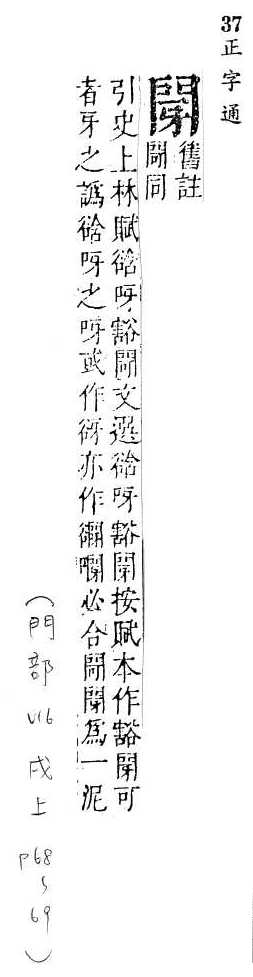 37 正字通
閕
舊註
閜同
引史上林賦谽呀豁閜文選谽呀豁閕按賦本作豁閕可
者牙之譌谽呀之呀或作谺亦作必合閜閕爲一泥
(門部 V16 戌上 P68~69)